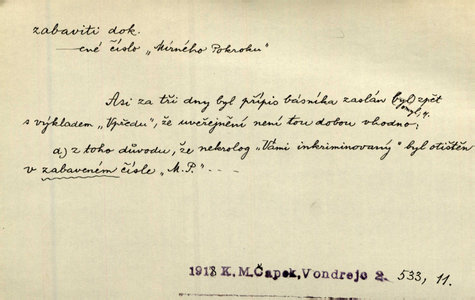 zabaviti dok.
—cné číslo „Mírného Pokroku"
Asi za tři dny byl přípis básníka zaslán (byl) zpět
s výkladem „Vpředu", že uveřejnění není tou dobou vhodno;
a) z toho důvodu, že nekrolog „Vámi inkriminovaný" byl otištěn
v zabaveném čísle „M. P." – – –
1918 K. M. Čapek, Vondrejc 2. 533, 11.